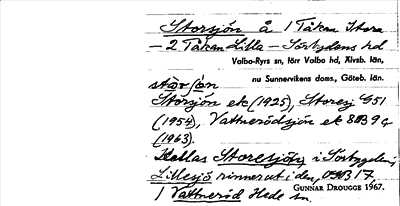 Storsjön å 1 Tåkan Stora
– 2 Tåkan Lilla – Sörbygdens hd
Valbo-Ryrs sn, förr Valbo hd, Älvsb. län,
nu Sunnervikens doms., Göteb. län.
Storsjön ek (1925), Storesj G51
(1954), Vattnerödsjön ek 8B9g
(1963).
Kallas Storesjön, i Sörbygden,
Lillesjö rinner ut i den, OND 17.
1 Vattneröd Hede sn.
GUNNAR DROUGGE 1967.